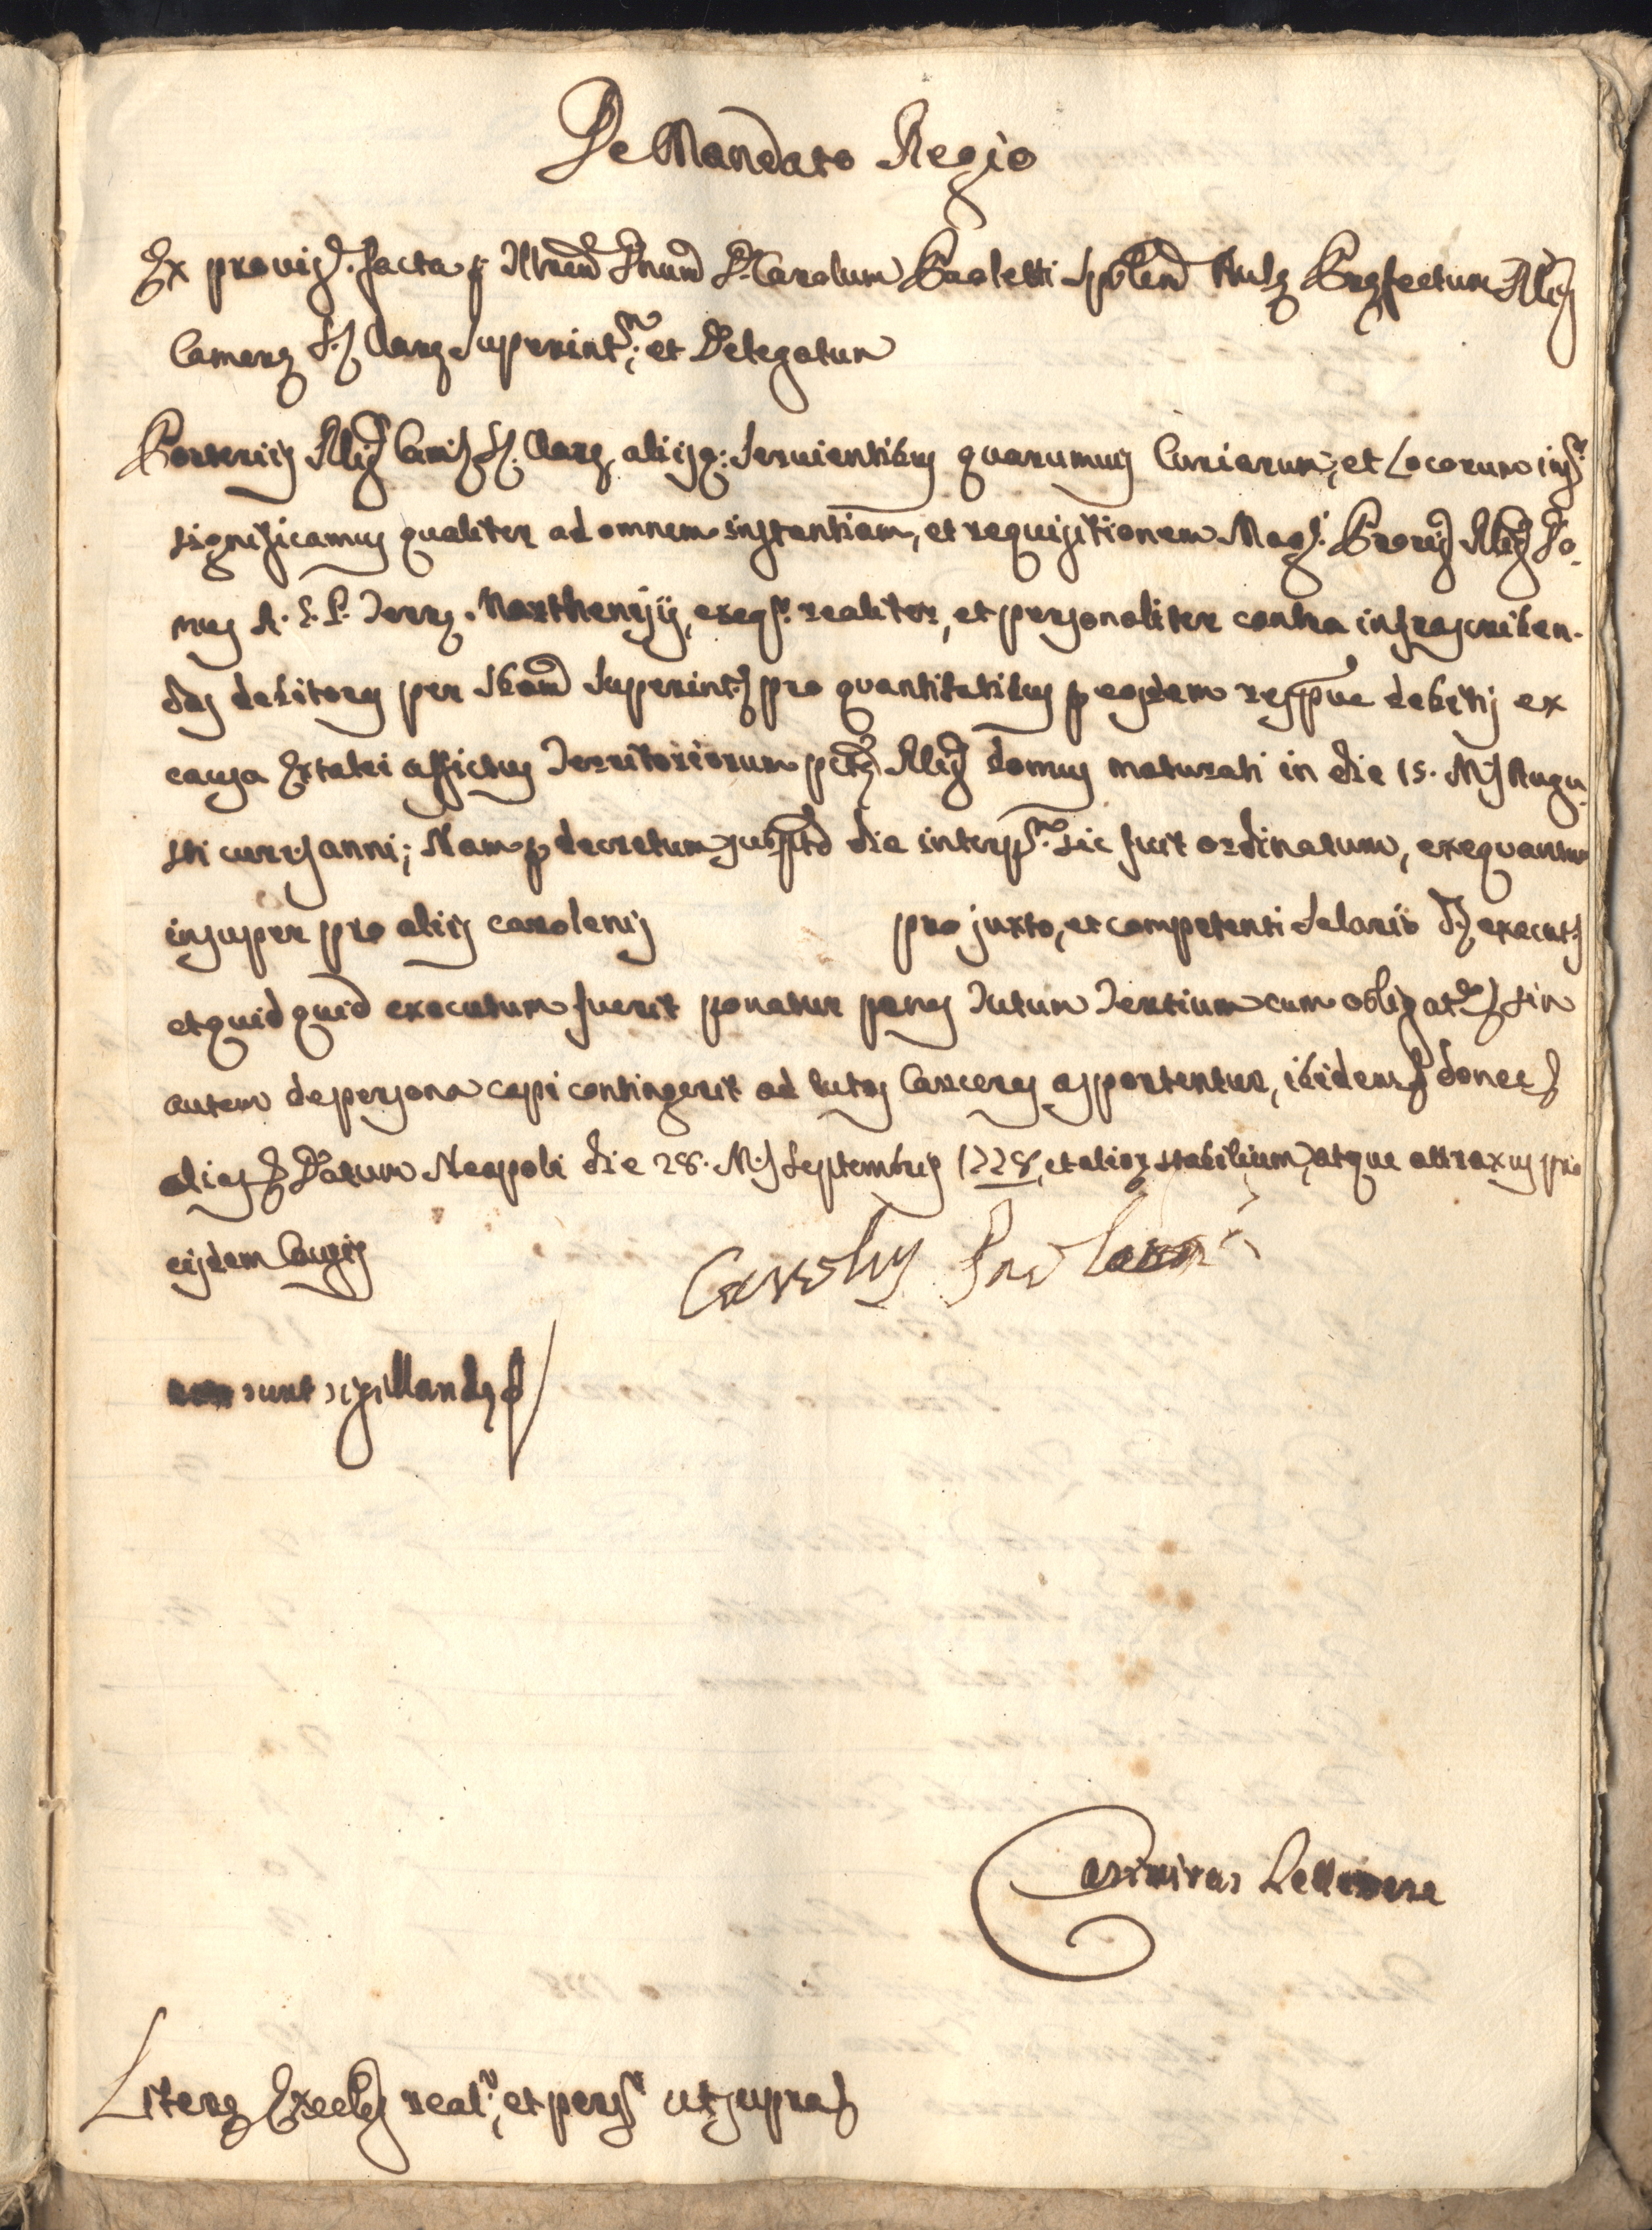 De Mandato Regio
Ex provis. facta p Illrem Dnum D. Carolum Paoletti Aulę Pręfectum Reg
Camerę S. Clarę Superint. et Delegatum
Porterijs Reg Cam S. Clarę alijsq: Servientibus quarumvis Curiarum, et Locorum ins
significamus qualiter ad omnem instantiam, et requisitionem Mag. Proris Reg Do-
mus A. G. P. Terrę Marthenisij, exeq. realiter, et personaliter contra infrascriben-
dos debitores per Superint. pro quantitatibus p eosdem respve debitis ex
causa Extalei affictus Territoriorum Reg domus maturati in die 15. M. Augu
sti curr. anni; Nam p decretum sub die interp. sic fuit ordinatum, exequantur
insuper pro alijs carolenis pro juxto, et competenti salario D. execut.
et quid quid executum fuerit ponatur penes Tutum Tertium cum obligat. sin
autem de persona capi contingerit ad tutos Carceres asportentur, ibidem donec
alias Datum Neapoli die 28. M. Septembris 1728, et alior stabilium, atque attraxus pro
eisdem Causis
Carolus
sunt sigillandę
Casimirus
Literę real. et pers. ut supra